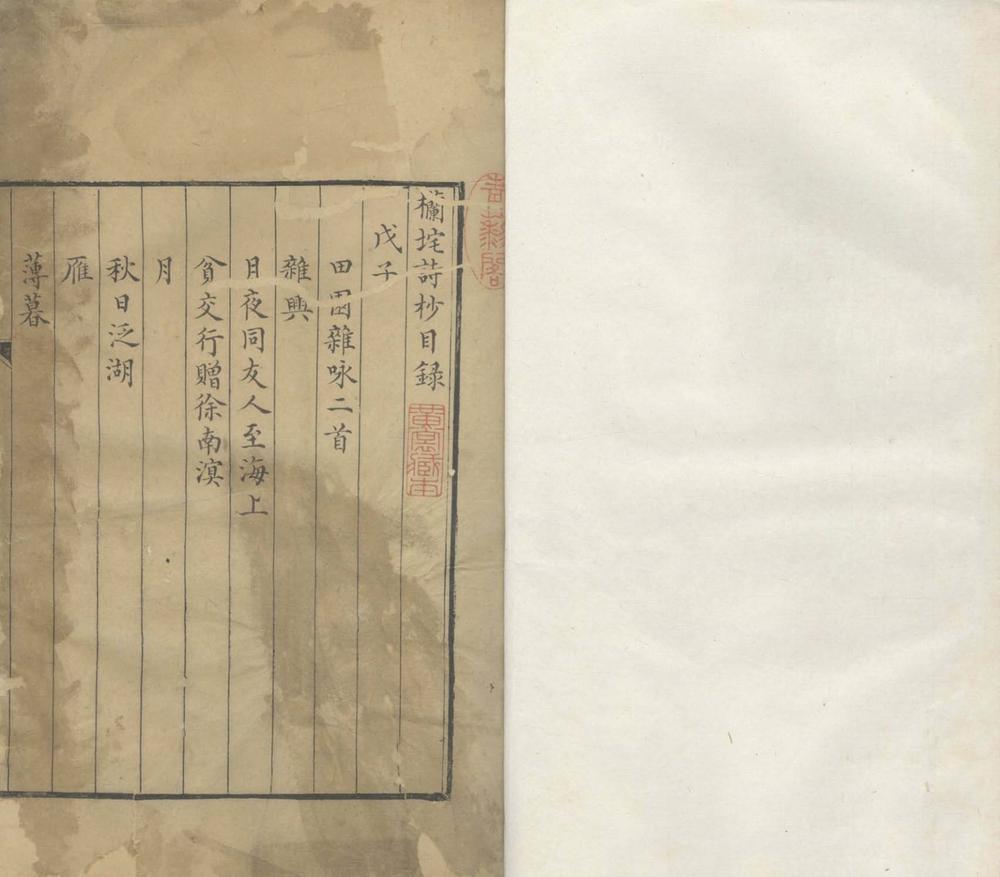 欄垞詩杪目録
戊子
田園雜咏二首
雜興
月夜同友人至海上
貧交行贈徐南溟
月
秋日泛湖
雁
薄暮